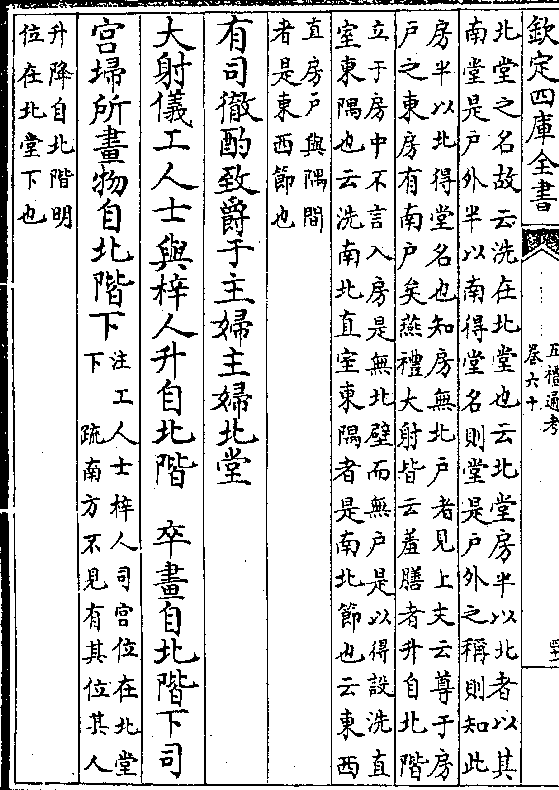 欽定四庫全書
五禮通考
卷六十
北堂之名故云洗在北堂也云北堂房半以北者以其
南堂是戶外半以南得堂名則堂是戶外之稱則知此
房半以北得堂名也知房無北戶者見上文云尊于房
戶之東房有南戶矣燕禮大射皆云羞膳者升自北階
立于房中不言入房是無北壁而無戶是以得設洗直
室東隅也云洗南北直室東隅者是南北節也云東西
直房戶與隅間
者是東西節也
有司徹酌致爵于主婦主婦北堂
大射儀工人士與梓人升自北階　卒畫自北階下司
宮埽所畫物自北階下
注工人士梓人司宮位在北堂
下　疏南方不見有其位其人
升降自北階明
位在北堂下也